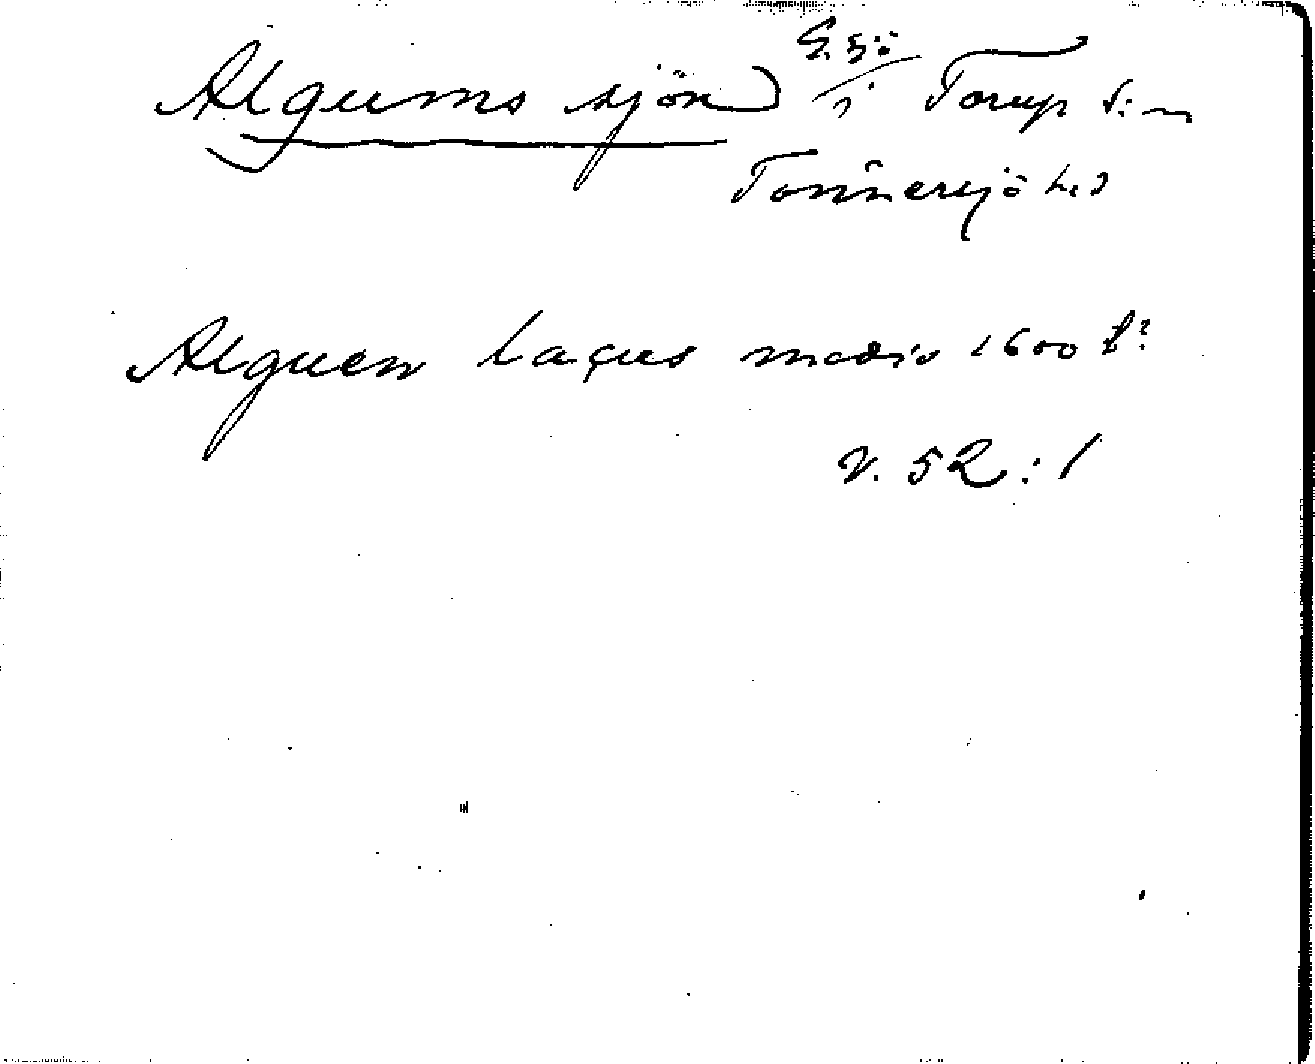 Algums sjön i Torup s:n
Tönnersjö hd
Alguen lacus medio 1600 t?
V. 52:1